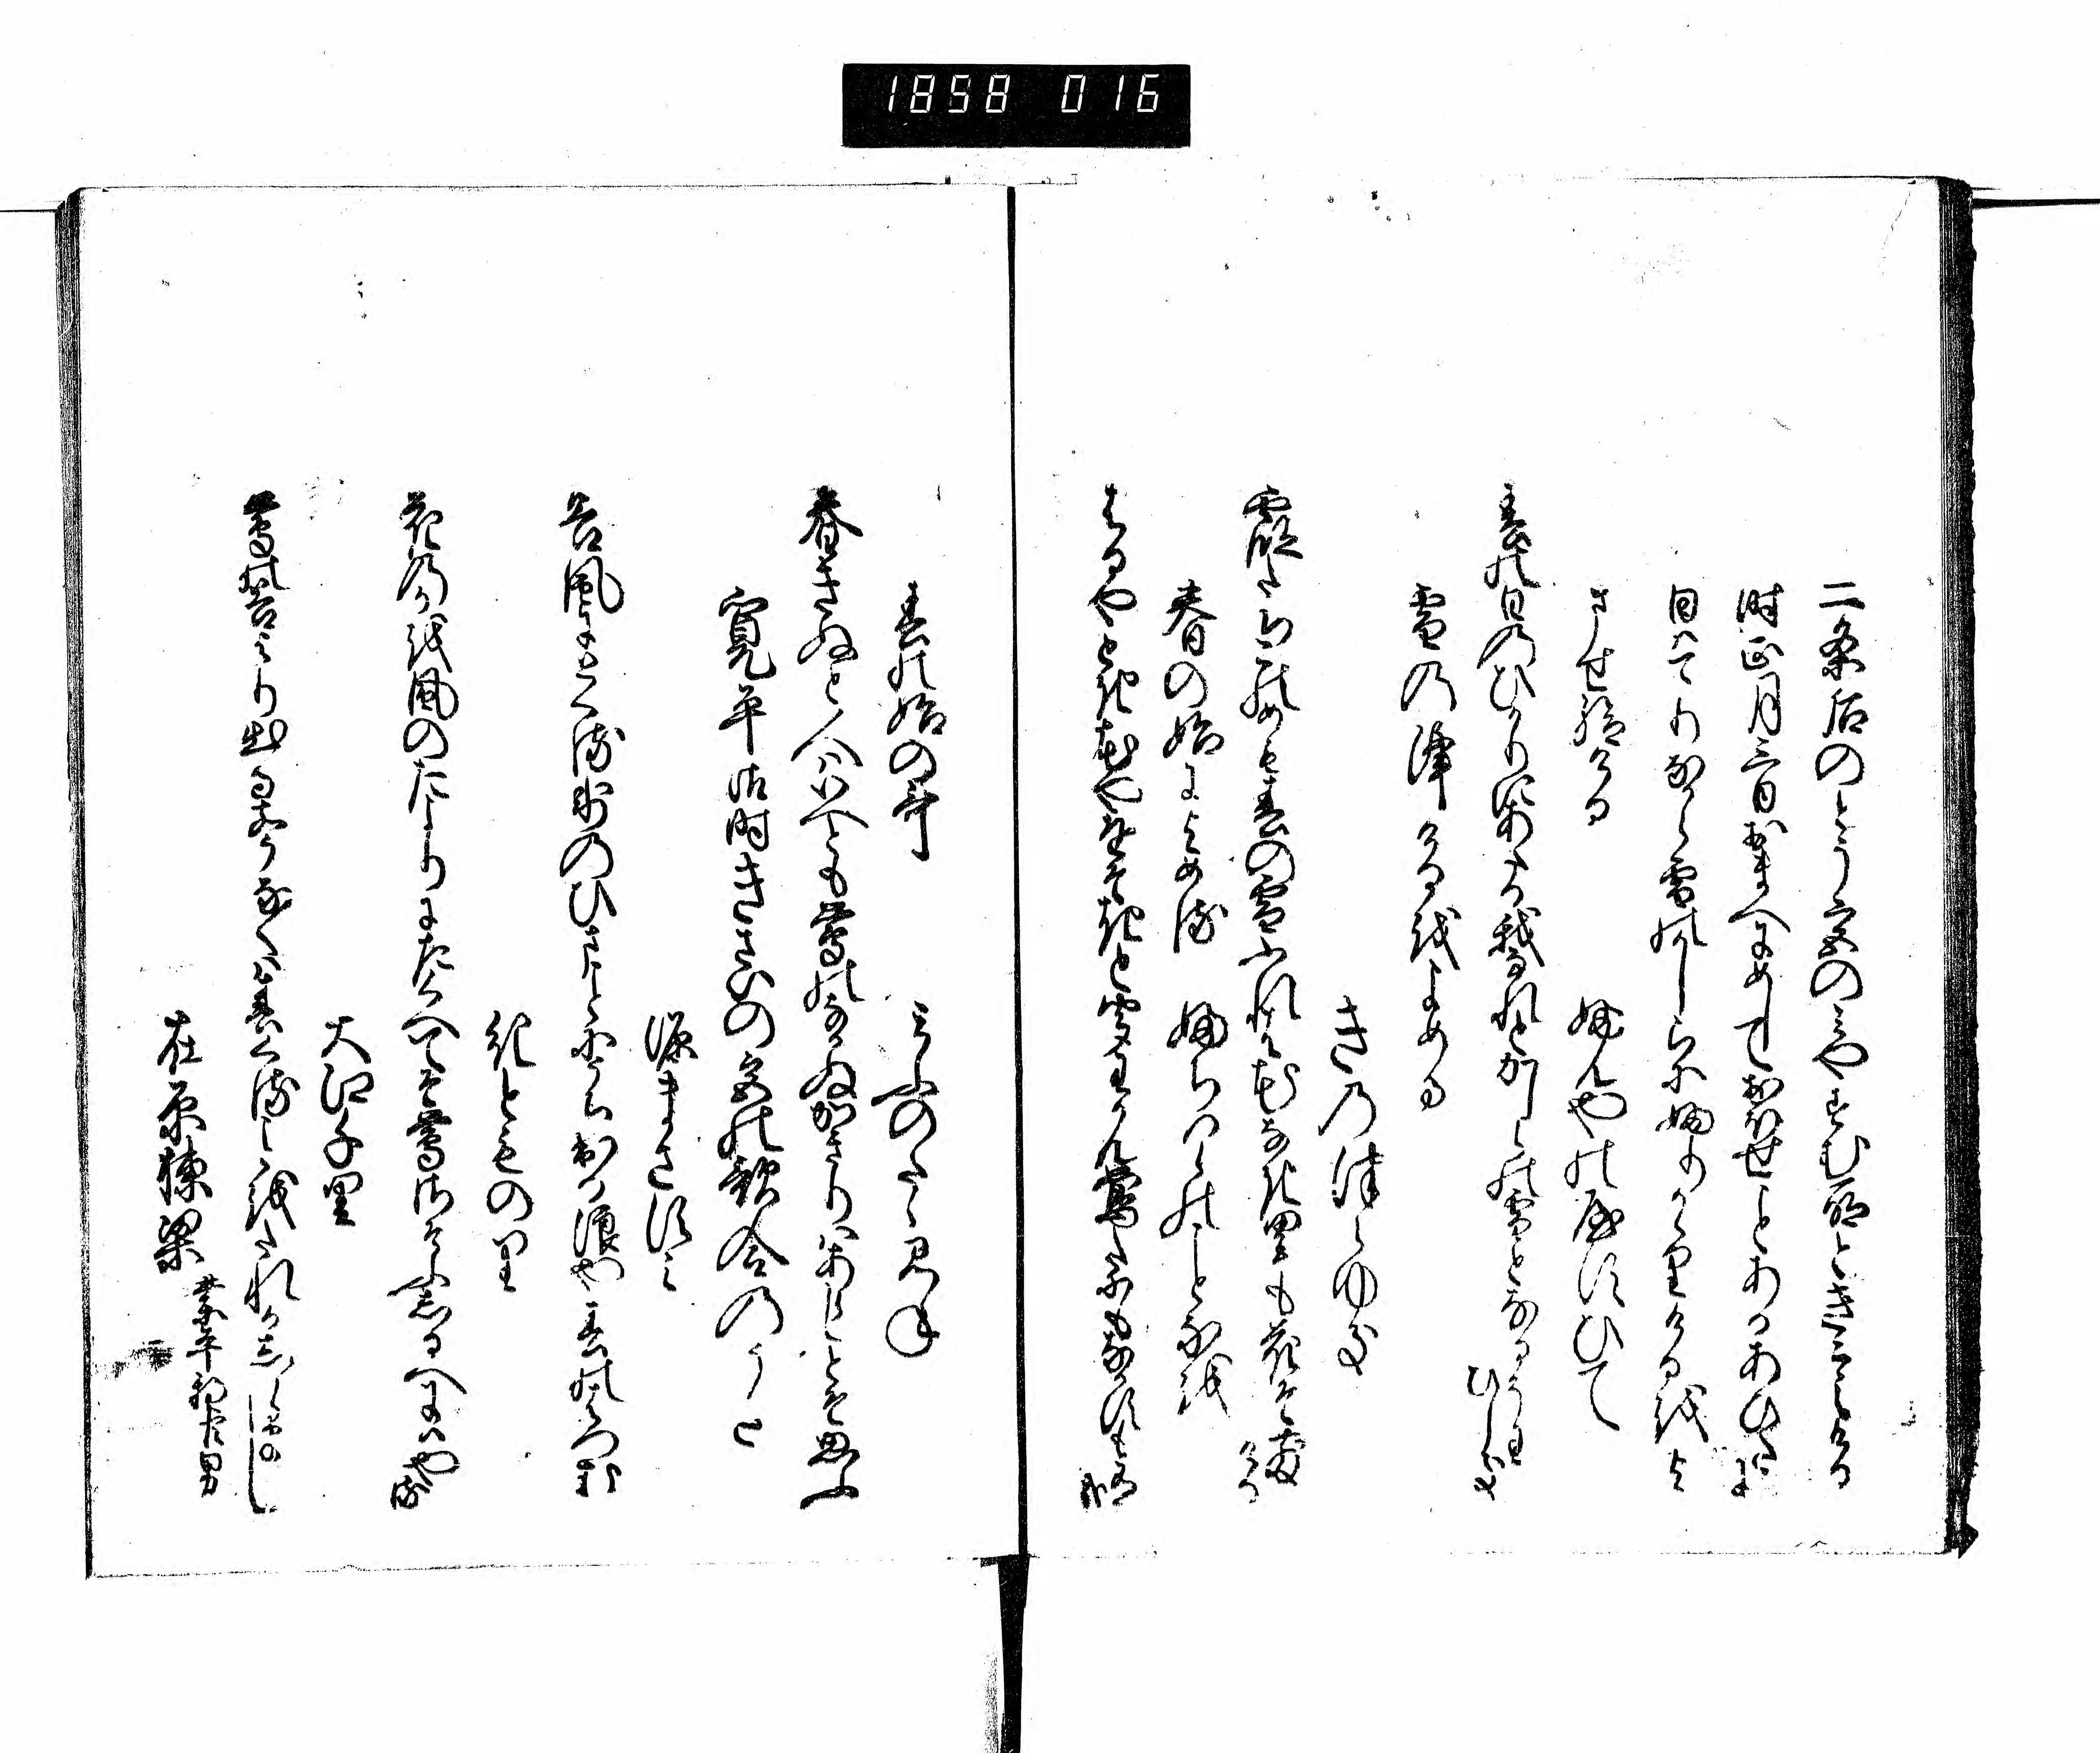 1858 016
二条后のとう宮のみやすむ所ときこえける
時正月三日おまへにめしておほせことあるあひたに
日はてりなから雪のかしらにふりかゝりけるをよ
ませ給ける
ふんやのやすひて
春の日のひかりにあたる我なれとかしらの雪となるそわ
ひしき
雪のふりけるをよめる
きのつらゆき
霞たちこのめも春の雪ふれは花なき里も花そちり
ける
春の始によめる
ふちはらのことなを
はるやとき花やをそきと聞わかん鶯たにもなかすも有
哉
春の始の哥
みふのたゝみね
春きぬと人はいへとも鶯のなかぬかきりはあらしとそ思ふ
寛平御時きさいの宮の歌合のうた
源まさすみ
谷風にとくる氷のひまことにうち出る浪や春のはつ花
紀とものり
花のかを風のたよりにたくへてそ鶯さそふしるへにはや
る
大江千里
鶯の谷よりいつるこゑなくは春くることをたれかしらまし
在原棟梁
業平朝臣男